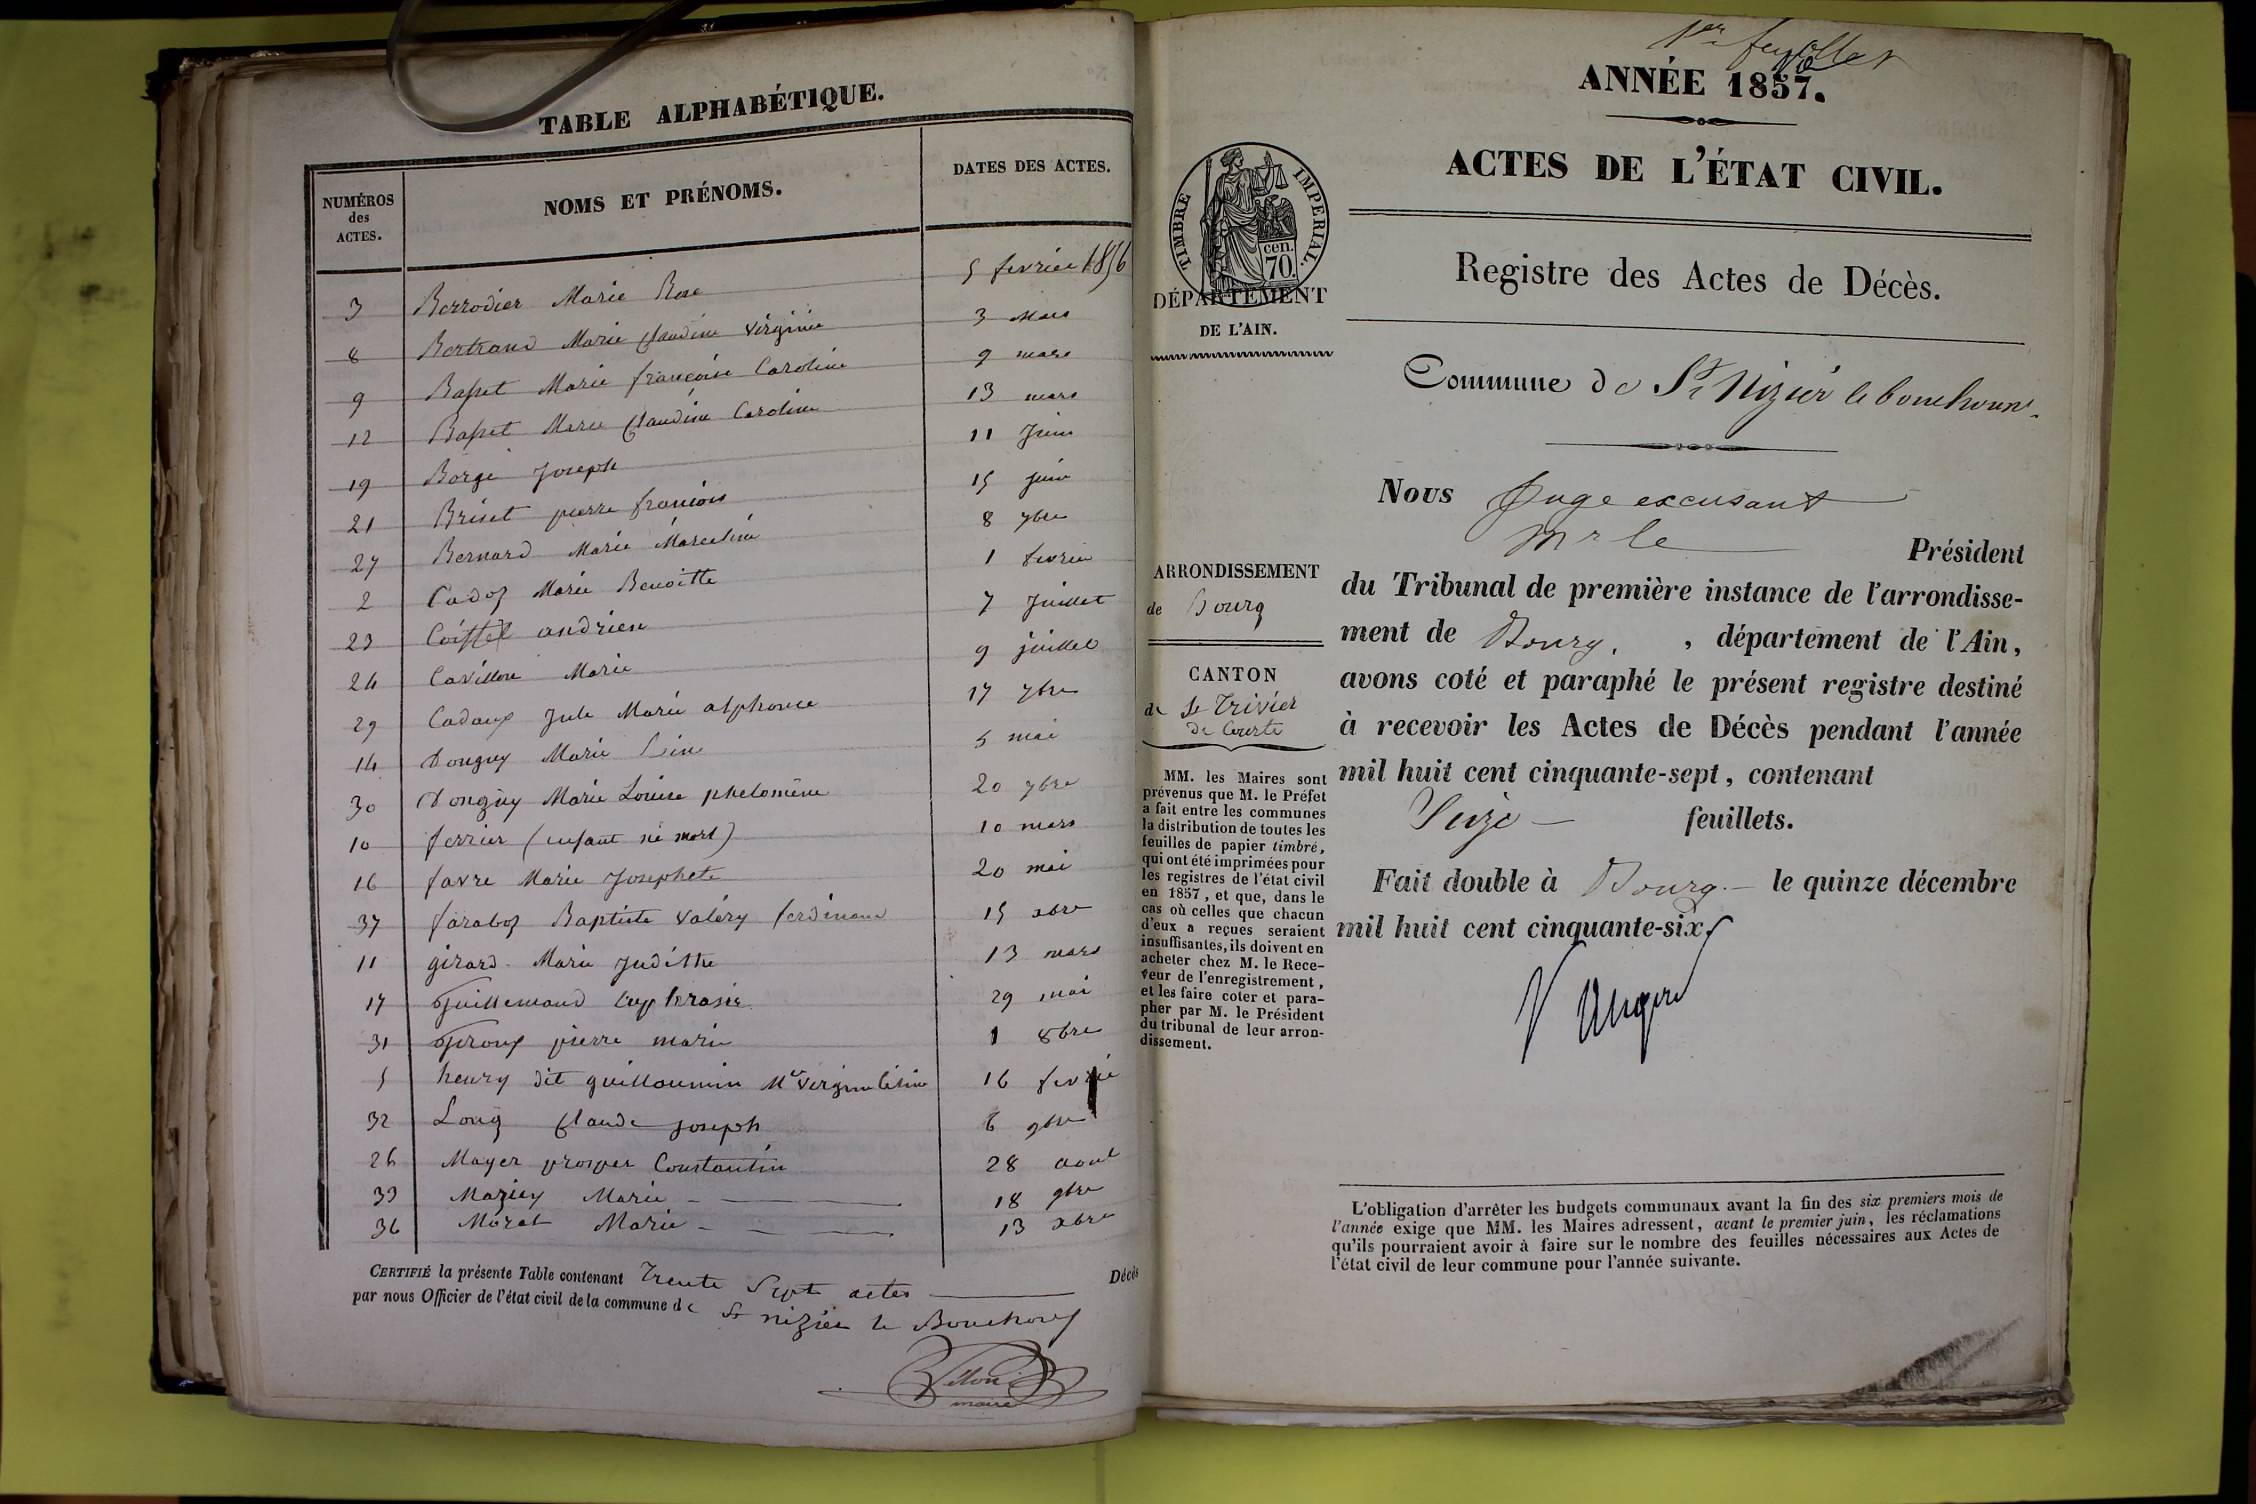 TABLE ALPHABÉTIQUE.
NUMÉROS des ACTES. NOMS ET PRÉNOMS. DATES DES ACTES.
3 Berrodier Marie Rose 5 fevrier 1856
8 Bertrand Marie Claudine Virginie 3 Mars
9 Basset Marie françoise Caroline 9 mars
12 Basset Marie Claudine Caroline 13 mars
19 Borge Joseph 11 Juin
21 Briset pierre francois 15 juin
27 Bernard Marie Marceline 8 7bre
2 Cadoz Marie Benoitte 1 fevrier
23 andrien 7 Juillet
24 Cavillon Marie 9 juillet
29 Cadoux Jule Marie alphonse 17 7bre
14 Donguy Marie 5 mai
30 Donguy Marie Louise phelomène 20 7bre
10 ferrier (enfant né mort) 10 mars
16 favre Marie Josephete 20 mai
37 faraboz Baptiste Valéry ferdinand 15 xbre
11 girard Marie Judithe 13 mars
17 Guillemaud Euphrasie 29 mai
31 Giroux pierre marie 1 8bre
5 henry dit guillaumin Mie Virginie 16 fevrié
32 Long Claude joseph 6 9bre
26 Mayer prosper Constantin 28 aout
33 Maziey Marie 18 9bre
36 Morat Marie 13 xbre
CERTIFIÉ la présente Table contenant Trente Sept actes Décès
par nous Officier de l'état civil de la commune de St nizier le Bouchoux
maire
1er feuillet
ANNÉE 1857.
ACTES DE L'ÉTAT CIVIL.
TIMBRE IMPERIAL.
cen.
70.
Registre des Actes de Décès.
DÉPARTEMENT
DE L'AIN.
Commune de St Nizier le bouchoux.
Nous Juge excusant
Mr le Président
du Tribunal de première instance de l'arrondisse-
ment de Bourg, , département de l'Ain,
avons coté et paraphé le présent registre destiné
à recevoir les Actes de Décès pendant l'année
mil huit cent cinquante-sept, contenant
Seize feuillets.
Fait double à Bourg le quinze décembre
mil huit cent cinquante-six.
ARRONDISSEMENT
de Bourg
CANTON
de St Trivier
de Courte
MM. les Maires sont
prévenus que M. le Préfet
a fait entre les communes
la distribution de toutes les
feuilles de papier timbré,
qui ont été imprimées pour
les registres de l'état civil
en 1857, et que, dans le
cas où celles que chacun
d'eux a reçues seraient
insuffisantes, ils doivent en
acheter chez M. le Rece-
veur de l'enregistrement,
et les faire coter et para-
pher par M. le Président
du tribunal de leur arron-
dissement.
L'obligation d'arrêter les budgets communaux avant la fin des six premiers mois de
l'année exige que MM. les Maires adressent, avant le premier juin, les réclamations
qu'ils pourraient avoir à faire sur le nombre des feuilles nécessaires aux Actes de
l'état civil de leur commune pour l'année suivante.